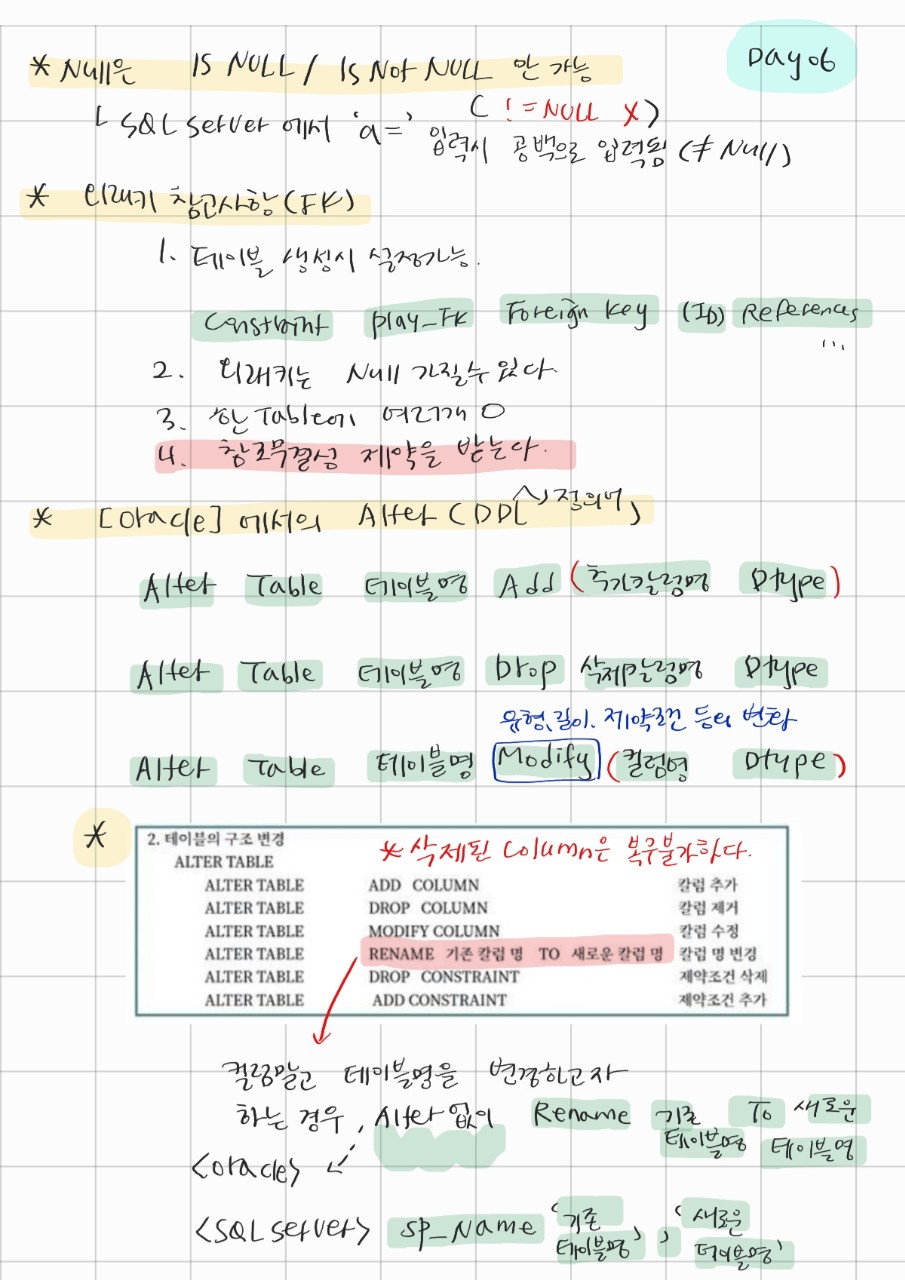 Day 06
* Null은 IS NULL / Is Not NULL 만 가능
( != NULL X )
└ SQL server 에서 'a=' 입력시 공백으로 입력됨 (≠ Null)
* 외래키 참고사항 (FK)
1. 테이블 생성시 설정가능.
Constraint play_FK Foreign key (ID) References ...
2. 외래키는 Null 가질수 없다.
3. 한 Table에 여러개 O
4. 참조무결성 제약을 받는다.
* [Oracle] 에서의 Alter (DDL 정의어)
Alter Table 테이블명 Add (추가칼럼명 Dtype)
Alter Table 테이블명 Drop 삭제칼럼명 Dtype
유형, 길이, 제약조건 등의 변화
Alter Table 테이블명 Modify (컬럼명 Dtype)
*
2. 테이블의 구조 변경
* 삭제된 Column은 복구불가하다.
ALTER TABLE
ALTER TABLE ADD COLUMN 칼럼 추가
ALTER TABLE DROP COLUMN 칼럼 제거
ALTER TABLE MODIFY COLUMN 칼럼 수정
ALTER TABLE RENAME 기존 칼럼 명 TO 새로운 칼럼 명 칼럼 명 변경
ALTER TABLE DROP CONSTRAINT 제약조건 삭제
ALTER TABLE ADD CONSTRAINT 제약조건 추가
컬럼말고 테이블명을 변경하고자
하는 경우, Alter 없이 Rename 기존 테이블명 To 새로운 테이블명
<oracle>
<SQL server> sp_Name '기존 테이블명', '새로운 테이블명'